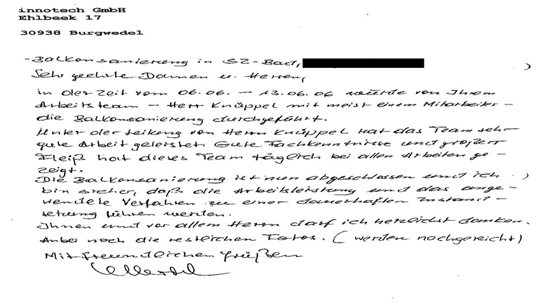 innotech GmbH
Ehlbeek 17
30938 Burgwedel
- Balkonsanierung in SZ-Bad,
Sehr geehrte Damen u. Herren,
in der Zeit vom 06.06. – 13.06.06 wurde von Ihrem
Arbeitsteam – Herr Knüppel mit meist einem Mitarbeiter –
die Balkonsanierung durchgeführt.
Unter der Leitung von Herrn Knüppel hat das Team sehr
gute Arbeit geleistet. Gute Fachkenntnisse und großer
Fleiß hat dieses Team täglich bei allen Arbeiten ge-
zeigt.
Die Balkonsanierung ist nun abgeschlossen und ich
bin sicher, daß die Arbeitsleistung und das ange-
wendete Verfahren zu einer dauerhaften Instand-
setzung führen werden.
Ihnen und vor allem Herrn darf ich herzlichst danken.
Anbei noch die restlichen Fotos. (werden nachgereicht)
Mit freundlichen Grüßen